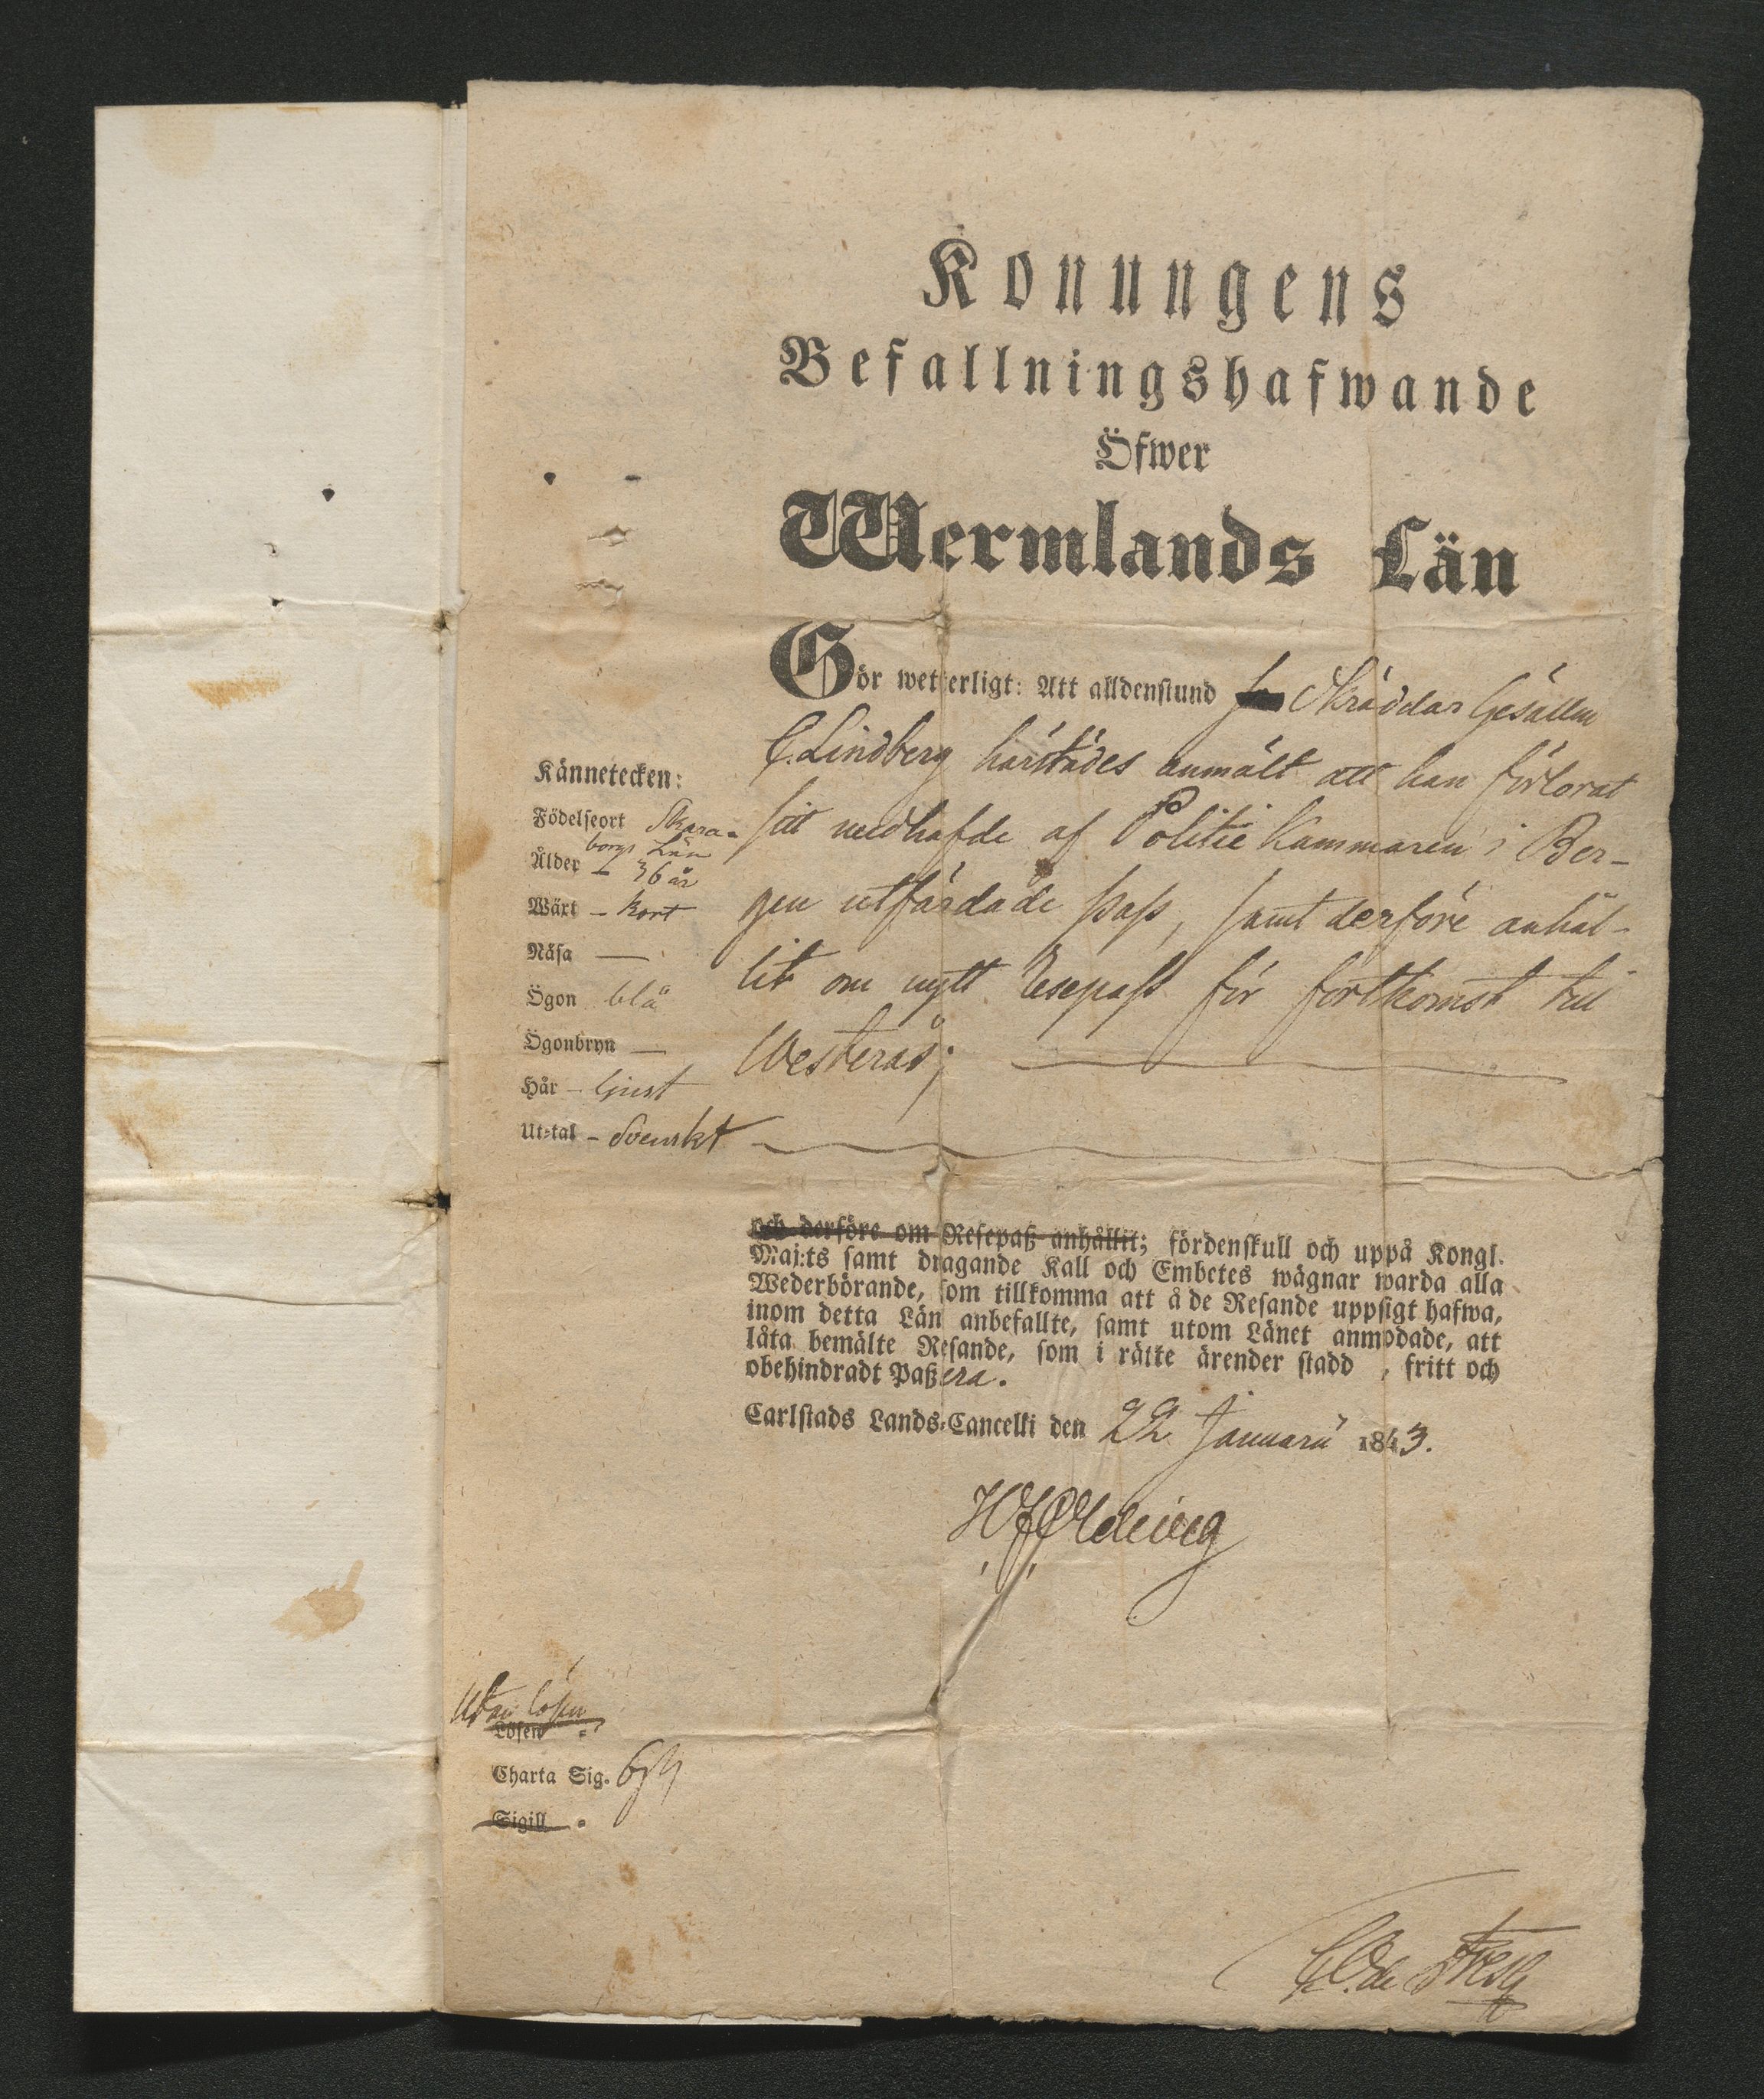 Konungens
Befallningshafwande
Öfwer
Wermlands Län
Gör wetterligt: Att alldenstund Skräddar Gesällen
C. Lindberg härstädes anmält att han förlorat
sitt medhafde af Politie Kammaren i Ber-
gen utfärdade pass, samt derföre anhål-
lit om nytt Resepass för fortkomst till
Westerås;
Kännetecken:
Födelseort Skara-
borgs Län
Ålder – 36 år
Wäxt – kort
Näsa —
Ögon blå
Ögonbryn —
Hår – ljust
Ut-tal – Svenskt
och derföre om Resepaß anhållit; fördenskull och uppå Kongl.
Maj:ts samt dragande Kall och Embetes wägnar warda alla
Wederbörande, som tillkomma att å de Resande uppsigt hafwa,
inom detta Län anbefallte, samt utom Länet anmodade, att
låta bemälte Resande, som i rätte ärender stadd , fritt och
obehindradt Paßera.
Carlstads Lands-Cancelli den 22 Januarii 1843.
Utan lösen
Lösen =
Charta Sig.
Sigill =